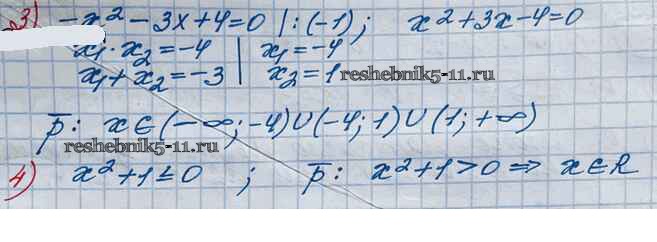 3) -x² - 3x + 4 = 0 | : (-1) ; x² + 3x - 4 = 0
x₁ · x₂ = -4 | x₁ = -4
x₁ + x₂ = -3 | x₂ = 1 reshebnik5-11.ru
p̅ : x ∈ (-∞; -4) ∪ (-4; 1) ∪ (1; +∞)
reshebnik5-11.ru
4) x² + 1 ≤ 0 ; p̅ : x² + 1 > 0 ⇒ x ∈ R